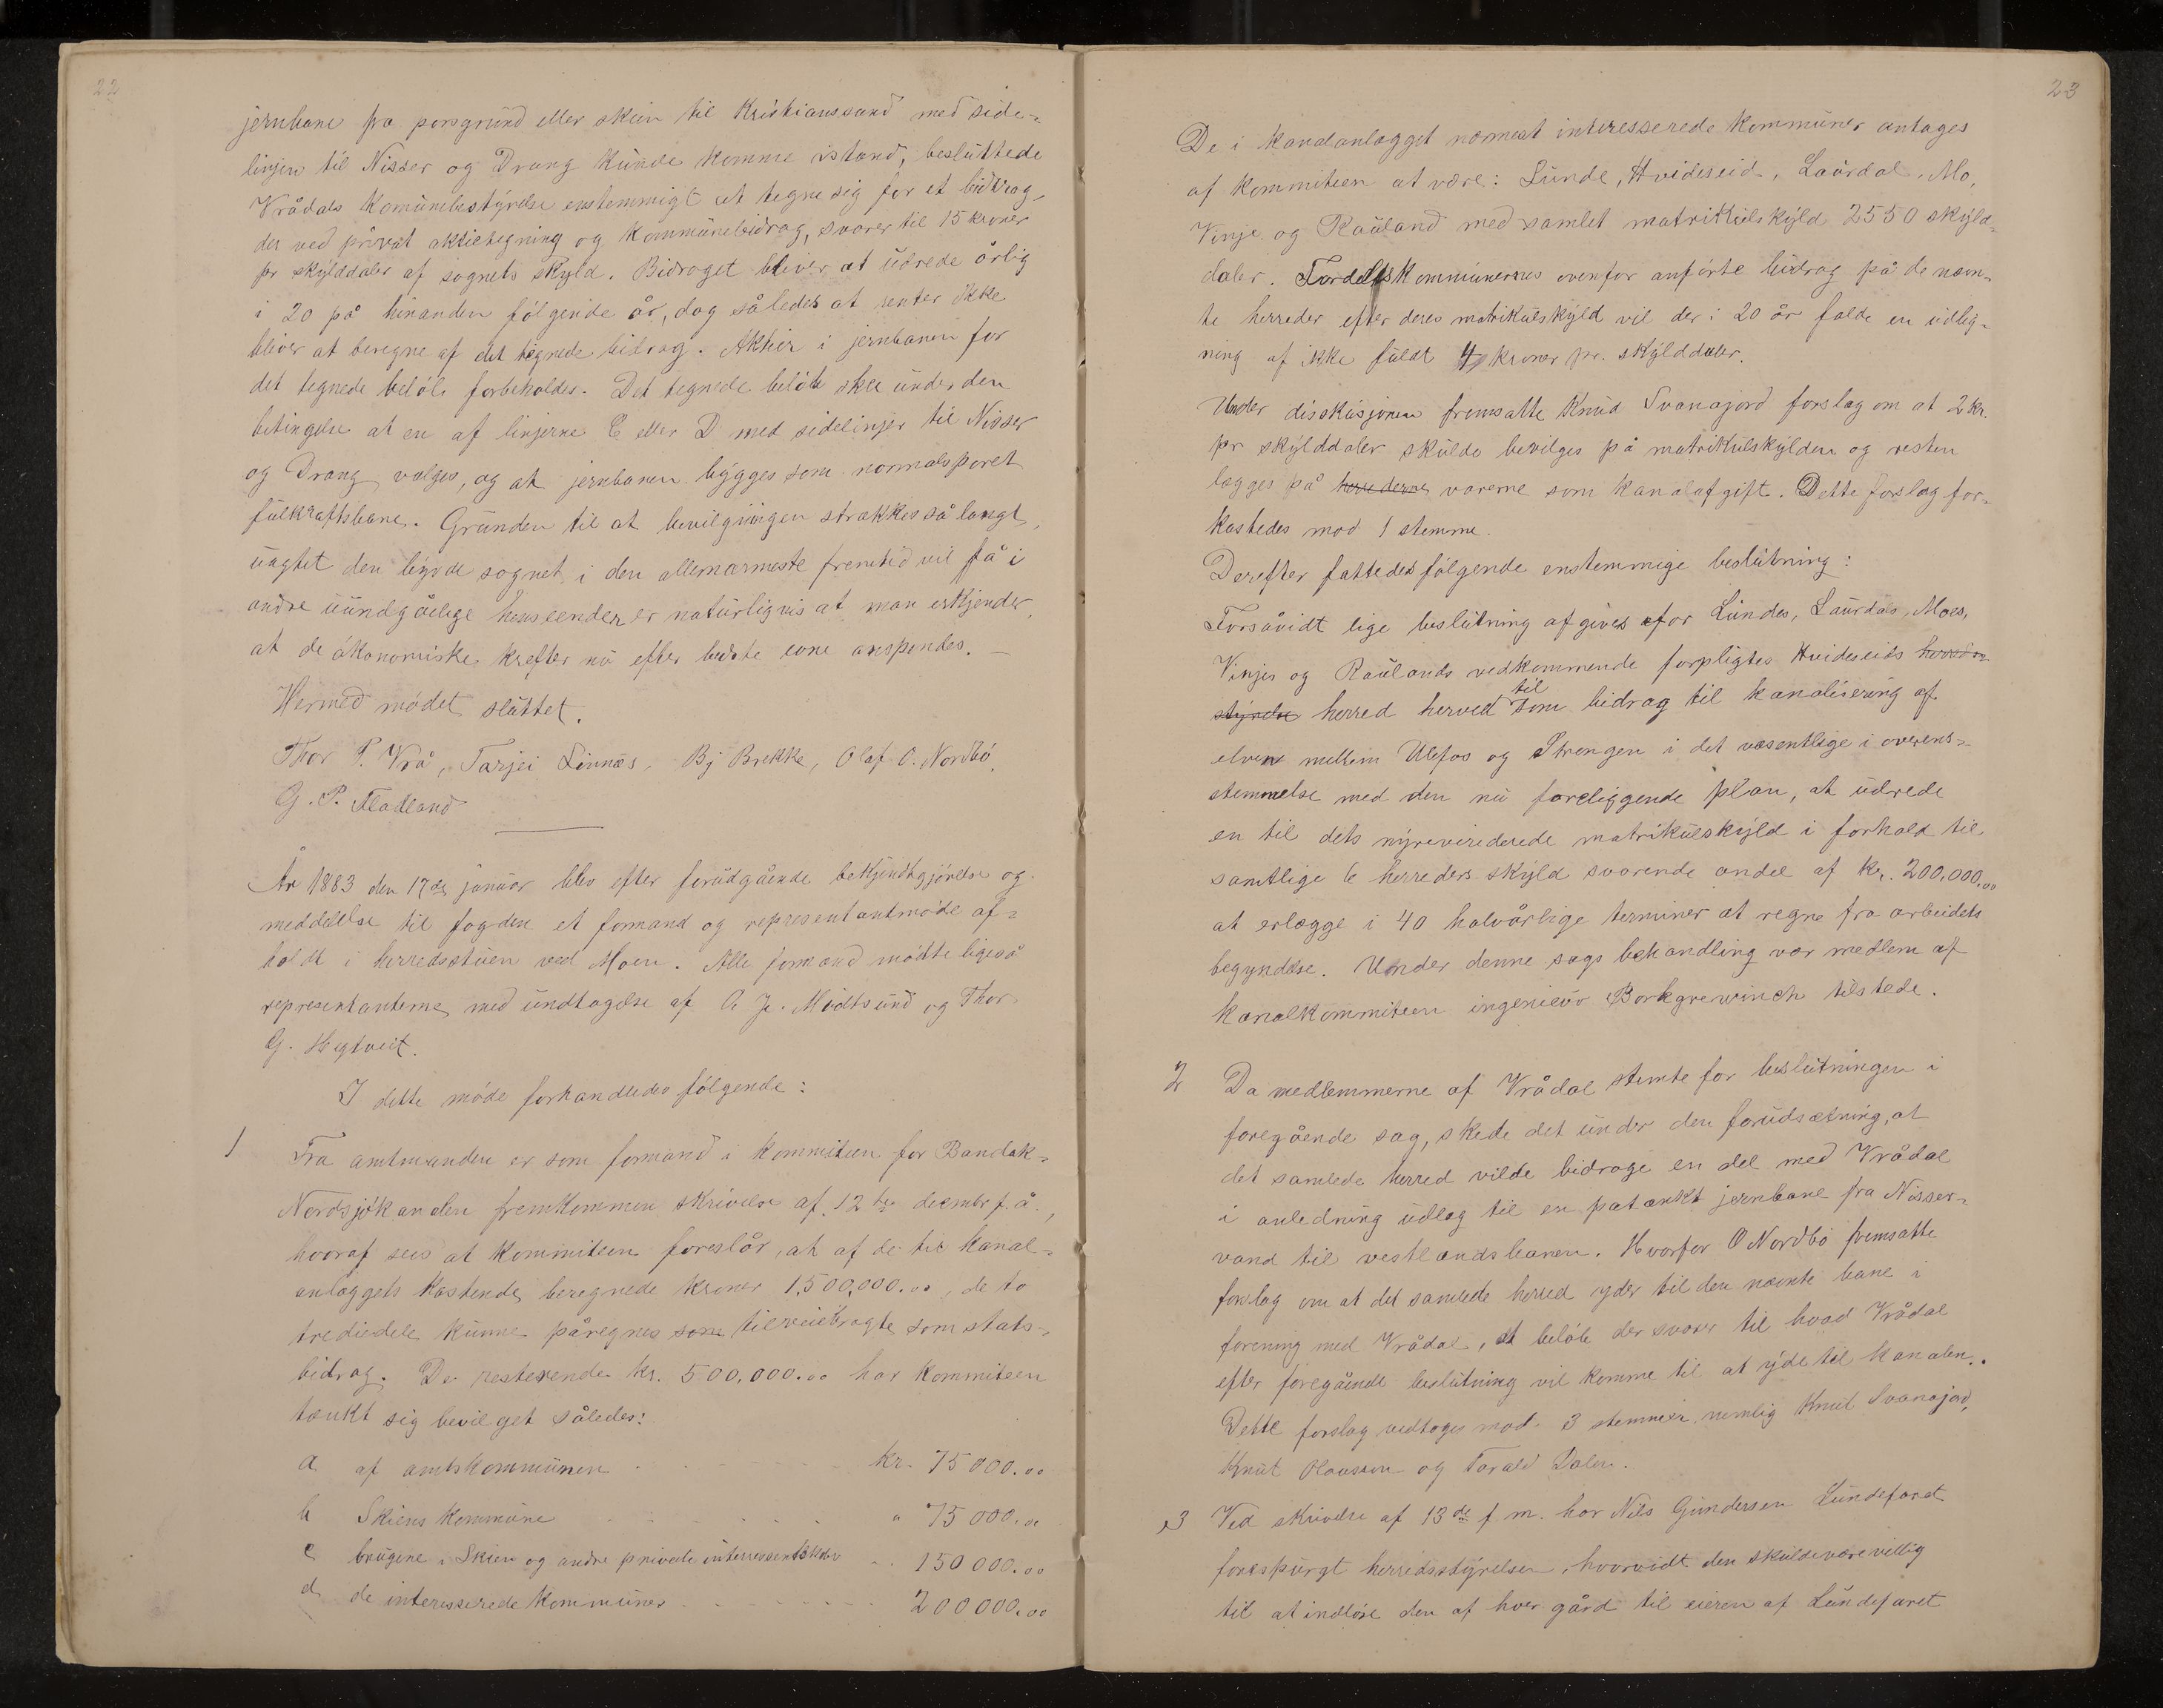 22
jernbane fra porsgrund eller skien til Kristianssand med side-
linjen til Nisser og Drang kunde komme istand, besluttede
Vrådals komunebestyrelse enstemmigt at tegne sig for et bidrag,
der ved privat aktietegning og kommunebidrag, svarer til 15 kroner
pr skylddaler af sognets skyld. Bidraget bliver at udrede årlig
i 20 på hinanden følgende år, dog således at renter ikke
bliver at beregne af det tegnede bidrag. Aktier i jernbanen for
det tegnede beløb forbeholdes. Det tegnede beløb skee under den
betingelse at en af linjerne C eller D med sidelinjer til Nisser
og Drang vælges, og at jernbanen bygges som normalsporet
fulkraftsbane. Grunden til at bevilgningen strækkes så langt,
uagtet den byrde sognet i den allernærmeste fremtid vil få i
andre uundgåelige henseender er naturligvis at man erkjender,
at de økonomiske krefter nu efter bedste evne anspendes. —
Hermed mødet sluttet.
Thor P. Vrå, Tarjei Linnæs, Bj Brekke, Olaf O. Nordbø,
G. P. Fladland
År 1883 den 17de januar blev efter forudgående bekjendtgjørelse og
meddelelse til fogden et formand og representantmøde af-
holdt i herredsstuen ved Moen. Alle formænd mødte ligeså
representanterne med undtagelse af O. J. Midtsund og Thor
G. Hegtveit.
I dette møde forhandledes følgende:
1 Fra amtmanden er som formand i kommiteen for Bandak-
Nordsjøkanalen fremkommen skrivelse af 12te decmbr f. å.,
hvoraf sees at kommiteen foreslår, at af de til kanal-
anlæggets kostende beregnede kroner 1,500,000.00, de to
trediedele kunne påregnes som tilveiebragte som stats-
bidrag. De resterende kr. 500,000.00 har kommiteen
tænkt sig bevilget således:
a af amtskommunen kr. 75000.00
b Skiens kommune " 75000.00
c brugene i Skien og andre private interressentskaber 150000.00
d de interesserede kommuner 200000.00
23
De i kanalanlægget nærmest interesserede kommuner antages
af kommiteen at være: Lunde, Hvideseid, Laurdal, Mo,
Vinje og Rauland med samlet matrikulskyld 2550 skyld-
daler. Fordeles kommunernes ovenfor anførte bidrag på de næv-
te herreder efter deres matrikulskyld vil der i 20 år falde en udlig-
ning af ikke fuldt 4 kroner pr. skylddaler.
Under diskusjonen fremsatte Knud Svanajord forslag om at 2 kr.
pr skylddaler skulde bevilges på matrikulskylden og resten
lægges på herrederne varerne som kanalafgift. Dette forslag for-
kastedes mod 1 stemme.
Derefter fattedes følgende enstemmige beslutning:
Forsåvidt lige beslutning afgives for Lundes, Laurdals, Moes,
Vinjes og Raulands vedkommende forpligtes Hvideseids herreds-
styrelse herred herved til som bidrag til kanalisering af
elven mellem Ulefos og Strengen i det væsentlige i overens-
stemmelse med den nu foreliggende plan, at udrede
en til dets nyreviderede matrikulskyld i forhold til
samtlige 6 herreders skyld svarende andel af kr. 200,000,00
at erlægge i 40 halvårlige terminer at regne fra arbeidets
begyndelse. Under denne sags behandling var medlem af
kanalkommiteen ingeniør Borkgrewinch tilstede.
2 Da medlemmerne af Vrådal stemte for beslutningen i
foregående sag, skede det under den forudsætning, at
det samlede herred vilde bidrage en del med Vrådal
i anledning udlæg til en påtænkt jernbane fra Nisser-
vand til vestlandsbanen. Hvorfor O Nordbø fremsatte
forslag om at det samlede herred yder til den nævnte bane i
forening med Vrådal, et beløb der svarer til hvad Vrådal
efter foregående beslutning vil komme til at yde til kanalen.
Dette forslag vedtoges mod 3 stemmer nemlig Knut Svanajord,
Knut Olavsson og Torald Dalen.
3 Ved skrivelse af 13de f m. har Nils Gundersen Lundefaret
forespurgt herredsstyrelsen, hvorvidt den skulde være villig
til at indløse den af hver gård til eieren af Lundefaret